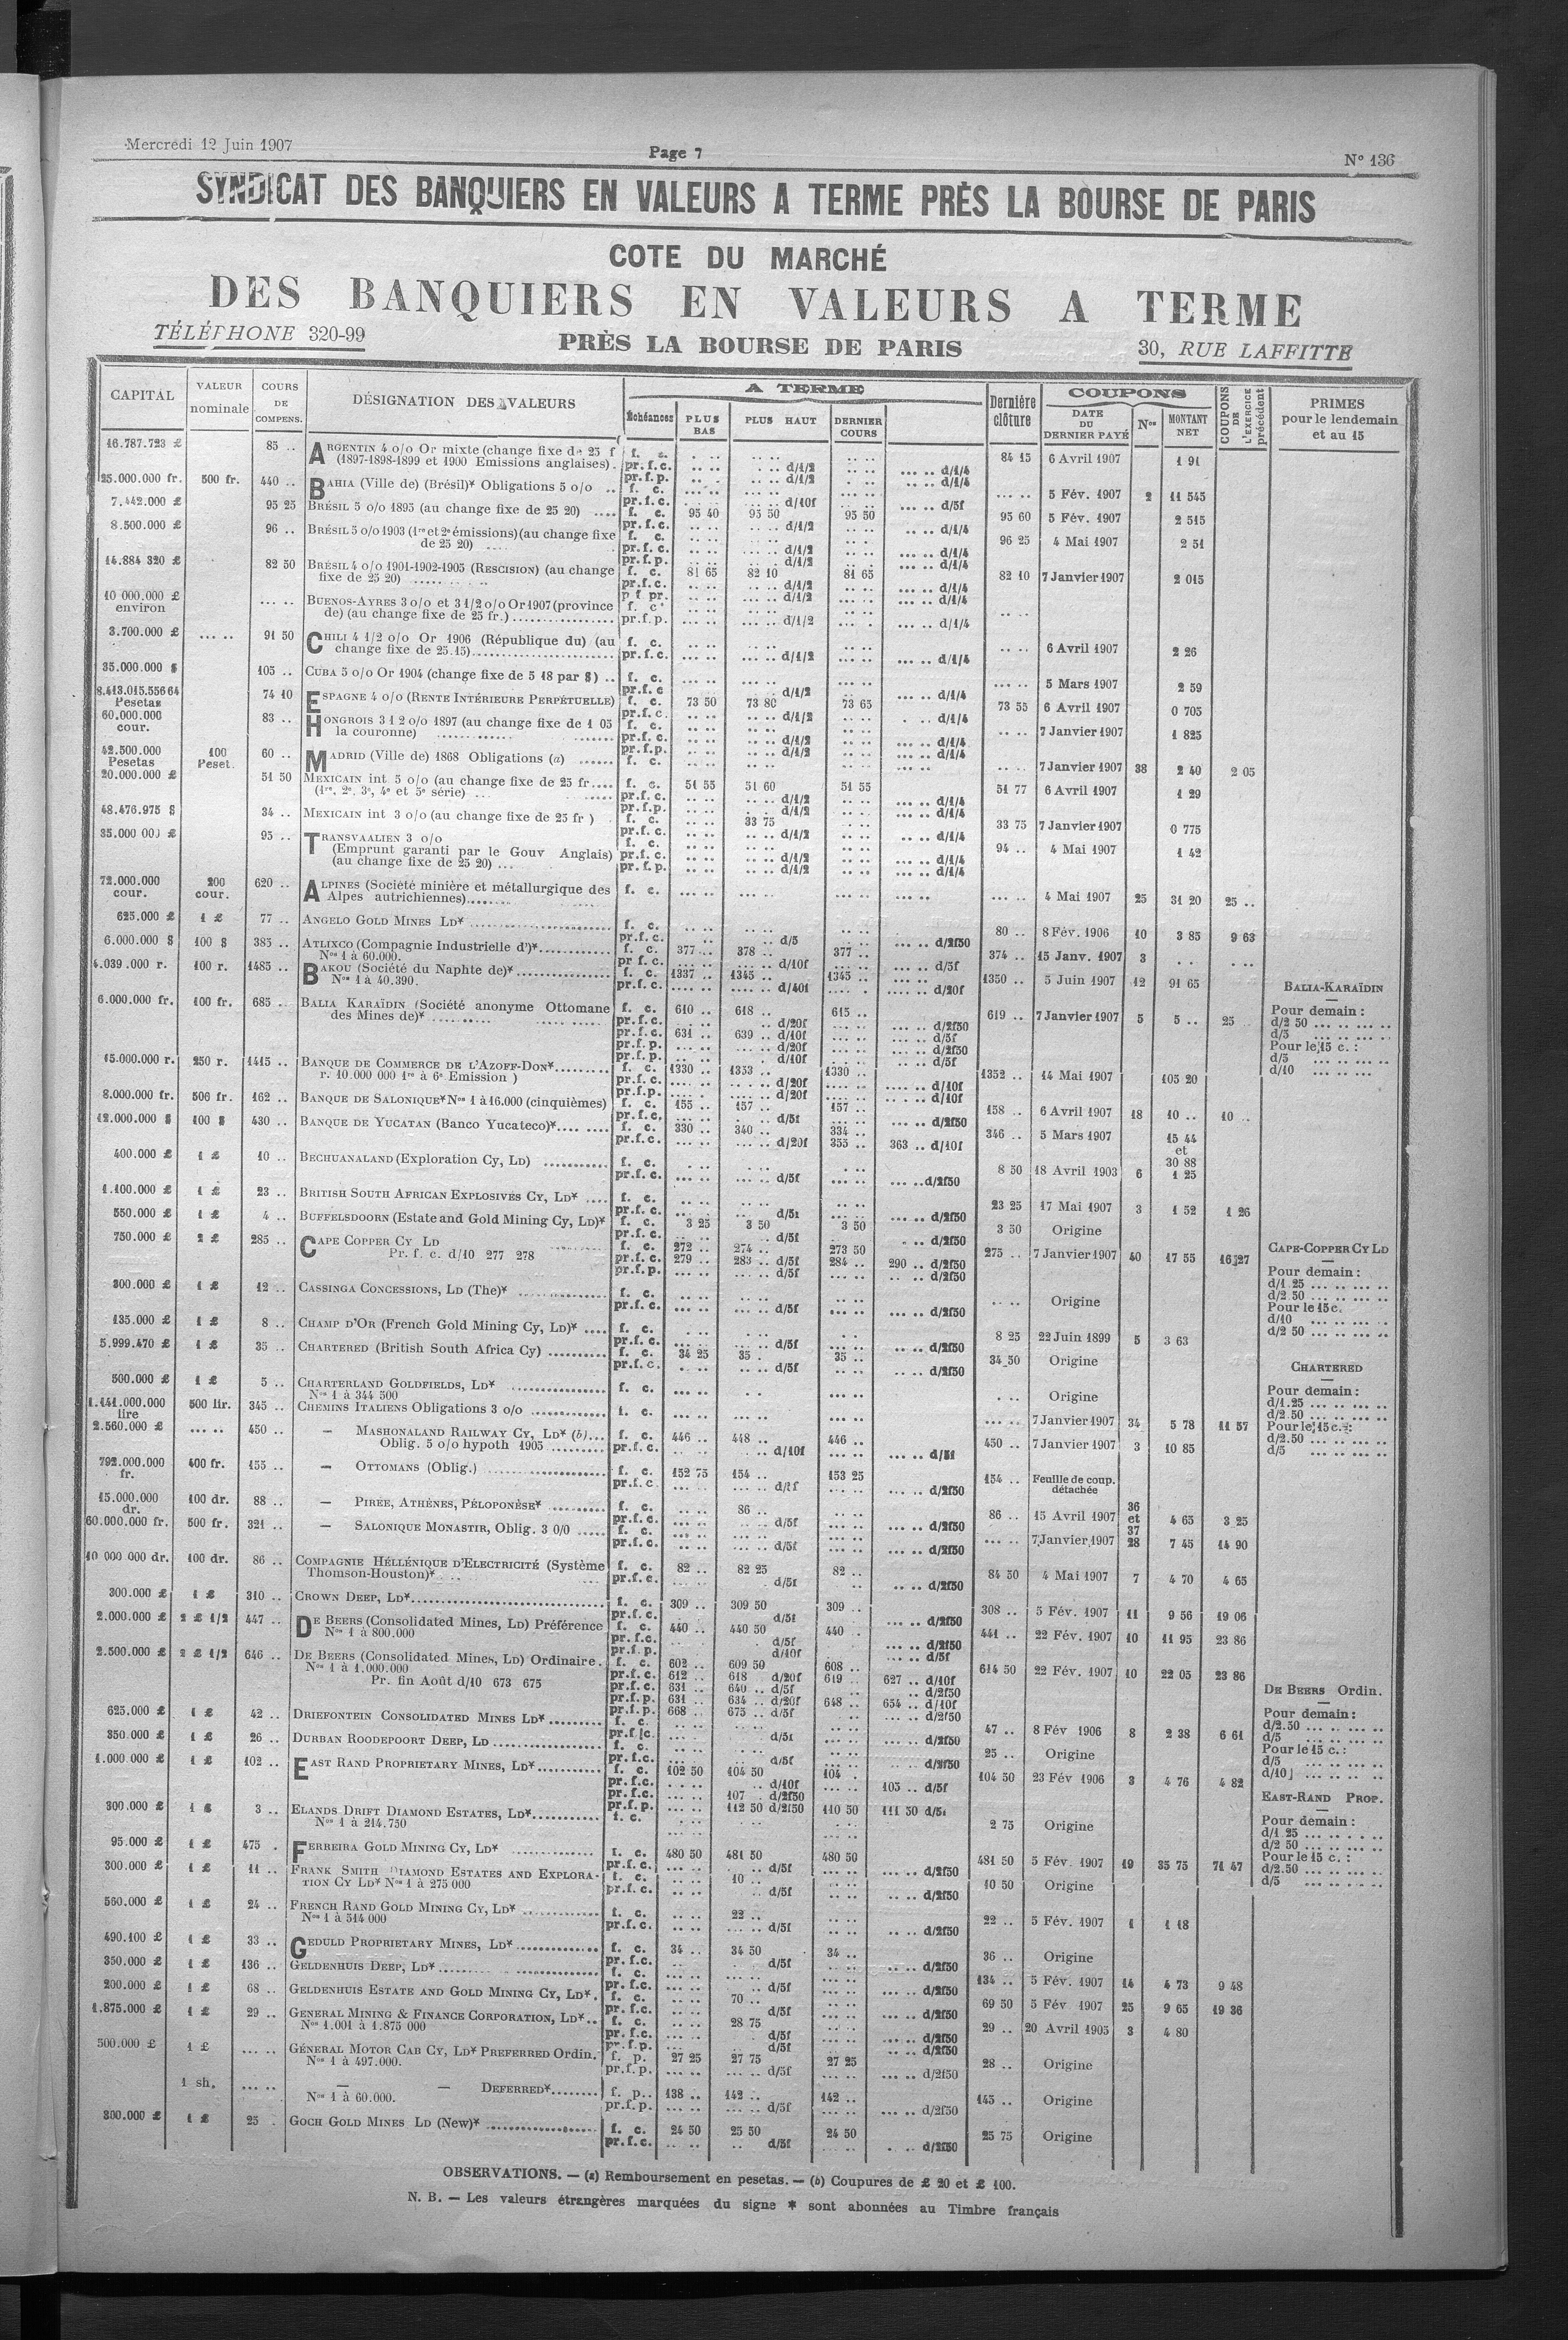 Mercredi 12 Juin 1907
Page 7
N° 136
SYNDICAT DES BANQUIERS EN VALEURS A TERME PRÈS LA BOURSE DE PARIS
COTE DU MARCHÉ
DES BANQUIERS EN VALEURS A TERME
TÉLÉPHONE 320-99
PRÈS LA BOURSE DE PARIS
30, RUE LAFFITTE
CAPITAL VALEUR nominale COURS DE COMPENS. DÉSIGNATION DES VALEURS A TERME Échéances PLUS BAS PLUS HAUT DERNIER COURS Dernière clôture COUPONS DATE DU DERNIER PAYÉ Nos MONTANT NET COUPONS DE L'EXERCICE précédent PRIMES pour le lendemain et au 15
16.787.723 £ 85 .. ARGENTIN 4 o/o Or mixte (change fixe de 25 f f. c. 84 15 6 Avril 1907 1 91
(1897-1898-1899 et 1900 Emissions anglaises). pr. f. c. d/1/2 d/1/4
pr. f. p. d/1/2 d/1/4
25.000.000 fr. 500 fr. 440 .. BAHIA (Ville de) (Brésil)* Obligations 5 o/o .. f. c. 5 Fév. 1907 2 11 545
pr. f. c. d/10f d/5f
7.442.000 £ 95 25 BRÉSIL 5 o/o 1895 (au change fixe de 25 20) .... f. c. 95 40 95 50 95 50 95 60 5 Fév. 1907 2 515
pr. f. c. d/1/2 d/1/4
8.500.000 £ 96 .. BRÉSIL 5 o/o 1903 (1re et 2e émissions) (au change fixe f. c. 96 25 4 Mai 1907 2 51
de 25 20) pr. f. c. d/1/2 d/1/4
pr. f. p. d/1/2 d/1/4
14.884 320 £ 82 50 BRÉSIL 4 o/o 1901-1902-1905 (RESCISION) (au change f. c. 81 65 82 10 81 65 82 10 7 Janvier 1907 2 015
fixe de 25 20) pr. f. c. d/1/2 d/1/4
p f pr. d/1/2 d/1/4
10 000.000 £ environ BUENOS-AYRES 3 o/o et 3 1/2 o/o Or 1907 (province f. c.
de) (au change fixe de 25 fr.) pr. f. p. d/1/2 d/1/4
3.700.000 £ 91 50 CHILI 4 1/2 o/o Or 1906 (République du) (au f. c. 6 Avril 1907 2 26
change fixe de 25.15) pr. f. c. d/1/2 d/1/4
35.000.000 $ 105 .. CUBA 5 o/o Or 1904 (change fixe de 5 18 par $) .. f. c. 5 Mars 1907 2 59
pr. f. c d/1/2 d/1/4
8.413.015.556 64 Pesetas 74 10 ESPAGNE 4 o/o (RENTE INTÉRIEURE PERPÉTUELLE) f. c. 73 50 73 80 73 65 73 55 6 Avril 1907 0 705
pr. f. c. d/1/2 d/1/4
60.000.000 cour. 83 .. HONGROIS 3 1 2 o/o 1897 (au change fixe de 1 05 f. c. 7 Janvier 1907 1 825
la couronne) pr. f. c. d/1/2 d/1/4
pr. f. p. d/1/2 d/1/4
42.500.000 Pesetas 100 Peset. 60 .. MADRID (Ville de) 1868 Obligations (a) ...... f. c. 7 Janvier 1907 38 2 40 2 05
20.000.000 £ 51 50 MEXICAIN int 5 o/o (au change fixe de 25 fr.... f. c. 51 55 51 60 51 55 51 77 6 Avril 1907 1 29
(1re, 2e, 3e, 4e et 5e série) pr. f. c. d/1/2 d/1/4
pr. f. p. d/1/2 d/1/4
48.476.975 $ 34 .. MEXICAIN int 3 o/o (au change fixe de 25 fr ) f. c. 33 75 33 75 7 Janvier 1907 0 775
pr. f. c. d/1/2 d/1/4
35.000 000 £ 95 .. TRANSVAALIEN 3 o/o f. c. 94 .. 4 Mai 1907 1 42
(Emprunt garanti par le Gouv Anglais) pr. f. c. d/1/2 d/1/4
(au change fixe de 25 20) pr. f. p. d/1/2 d/1/4
72.000.000 cour. 200 cour. 620 .. ALPINES (Société minière et métallurgique des f. c. 4 Mai 1907 25 31 20 25 ..
Alpes autrichiennes)
625.000 £ 1 £ 77 .. ANGELO GOLD MINES LD* f. c. 80 .. 8 Fév. 1906 10 3 85 9 63
pr. f. c. d/5 d/2f50
6.000.000 $ 100 $ 385 .. ATLIXCO (Compagnie Industrielle d')* f. c. 377 .. 378 .. 377 .. 374 .. 15 Janv. 1907 3
Nos 1 à 60.000. pr f. c. d/10f d/5f
4.039 .000 r. 100 r. 1485 .. BAKOU (Société du Naphte de)* f. c. 1337 .. 1345 .. 1345 .. 1350 .. 5 Juin 1907 12 91 65
Nos 1 à 40.390. pr. f. c. d/40f d/20f
BALIA-KARAÏDIN
6.000.000 fr. 100 fr. 685 .. BALIA KARAÏDIN (Société anonyme Ottomane f. c. 610 .. 618 .. 615 .. 619 .. 7 Janvier 1907 5 5 .. 25 Pour demain :
des Mines de)* pr. f. c. d/20f d/2f50 d/2 50
pr. f. c. 631 .. 639 .. d/10f d/5f d/5
pr. f. p. d/20f d/2f50 Pour le 15 c. :
pr. f. p. d/10f d/5f d/5
15.000.000 r. 250 r. 1415 .. BANQUE DE COMMERCE DE L'AZOFF-DON* f. c. 1330 .. 1353 .. 1330 .. 1352 .. 14 Mai 1907 105 20 d/10
r. 10.000 000 1re à 6e Emission ) pr. f. c. d/20f d/10f
pr. f. p. d/20f d/10f
8.000.000 fr. 506 fr. 162 .. BANQUE DE SALONIQUE* Nos 1 à 16.000 (cinquièmes) f. c. 155 .. 157 .. 157 .. 158 .. 6 Avril 1907 18 10 .. 10 ..
pr. f. c. d/5f d/2f50
12.000.000 $ 100 $ 430 .. BANQUE DE YUCATAN (Banco Yucateco)* f. c. 330 .. 340 .. 334 .. 346 .. 5 Mars 1907 15 44 et 30 88
pr. f. c. d/20f 355 .. 363 .. d/10f
400.000 £ 1 £ 10 .. BECHUANALAND (Exploration Cy, LD) f. c. 8 50 18 Avril 1903 6 1 25
pr. f. c. d/5f d/2f50
1.100.000 £ 1 £ 23 .. BRITISH SOUTH AFRICAN EXPLOSIVES CY, LD* .... f. c. 23 25 17 Mai 1907 3 1 52 1 26
pr. f. c. d/5f d/2f50
550.000 £ 1 £ 4 .. BUFFELSDOORN (Estate and Gold Mining Cy, LD)* f. c. 3 25 3 50 3 50 3 50 Origine
pr. f. c. d/5f d/2f50
750.000 £ 2 £ 285 .. CAPE COPPER CY LD f. c. 272 .. 274 .. 273 50 275 .. 7 Janvier 1907 40 17 55 16 27 CAPE-COPPER CY LD
Pr. f. c. d/10 277 278 pr. f. c. 279 .. 283 .. d/5f 284 .. 290 .. d/2f50 Pour demain :
pr. f. p. d/5f d/2f50 d/1 25
300.000 £ 1 £ 12 .. CASSINGA CONCESSIONS, LD (The)* f. c. Origine d/2.50
pr. f. c. d/5f d/2f50 Pour le 15 c.
135.000 £ 1 £ 8 .. CHAMP D'OR (French Gold Mining Cy, LD)* .... f. c. 8 25 22 Juin 1899 5 3 63 d/10
pr. f. c. d/5f d/2f50 d/2 50
5.999.470 £ 1 £ 35 .. CHARTERED (British South Africa Cy) f. c. 34 25 35 . 35 .. 34 50 Origine
pr. f. c. d/5f d/2f50 CHARTERED
500.000 £ 1 £ 5 .. CHARTERLAND GOLDFIELDS, LD* f. c. Origine Pour demain :
Nos 1 à 344 500 d/1.25
1.441.000.000 lire 500 lir. 345 .. CHEMINS ITALIENS Obligations 3 o/o f. c. 7 Janvier 1907 34 5 78 11 57 d/2.50
2.560.000 £ 450 .. — MASHONALAND RAILWAY CY, LD* (b)... f. c. 446 .. 448 .. 446 .. 450 .. 7 Janvier 1907 3 10 85 Pour le 15 c. :
Oblig. 5 o/o hypoth 1905 pr. f. c. d/10f d/5f d/2.50
d/5
792.000.000 fr. 400 fr. 155 .. — OTTOMANS (Oblig.) f. c. 152 75 154 .. 153 25 154 .. Feuille de coup. détachée
pr. f. c d/5f d/2f50
15.000.000 dr. 100 dr. 88 .. — PIRÉE, ATHÈNES, PÉLOPONÈSE* f. c. 86 .. 86 .. 15 Avril 1907 36 et 37 4 65 3 25
pr. f. c. d/5f d/2f50
60.000.000 fr. 500 fr. 321 .. — SALONIQUE MONASTIR, Oblig. 3 0/0 f. c. 7 Janvier 1907 28 7 45 14 90
pr. f. c. d/5f d/2f50
10 000 000 dr. 100 dr. 86 .. COMPAGNIE HÉLLÉNIQUE D'ELECTRICITÉ (Système f. c. 82 .. 82 25 82 .. 84 50 4 Mai 1907 7 4 70 4 65
Thomson-Houston)* pr. f. c. d/5f d/2f50
300.000 £ 1 £ 310 .. CROWN DEEP, LD* f. c. 309 .. 309 50 309 .. 308 .. 5 Fév. 1907 11 9 56 19 06
pr. f. c. d/5f d/2f50
2.000.000 £ 2 £ 1/2 447 .. DE BEERS (Consolidated Mines, LD) Préférence f. c. 440 .. 440 50 440 .. 441 .. 22 Fév. 1907 10 11 95 23 86
Nos 1 à 800.000 pr. f. c. d/5f d/2f50
pr. f. p. d/10f d/5f
2.500.000 £ 2 £ 1/2 646 .. DE BEERS (Consolidated Mines, LD) Ordinaire. f. c. 602 .. 609 50 608 .. 614 50 22 Fév. 1907 10 22 05 23 86
Nos 1 à 1.000.000 pr. f. c. 612 .. 618 .. d/20f 619 .. 627 .. d/10f
Pr. fin Août d/10 673 675 pr. f. c. 631 .. 640 .. d/5f d/2f50 DE BEERS Ordin.
pr. f. p. 631 .. 634 .. d/20f 648 .. 654 .. d/10f
pr. f. p. 668 .. 675 .. d/5f d/2f50 Pour demain :
625.000 £ 1 £ 42 .. DRIEFONTEIN CONSOLIDATED MINES LD* f. c. 47 .. 8 Fév 1906 8 2 38 6 61 d/2.50
pr. f. c. d/5f d/2f50 d/5
350.000 £ 1 £ 26 .. DURBAN ROODEPOORT DEEP, LD f. c. 25 .. Origine Pour le 15 c. :
pr. f. c. d/5f d/2f50 d/5
1.000 000 £ 1 £ 102 .. EAST RAND PROPRIETARY MINES, LD* f. c. 102 50 104 50 104 . 104 50 23 Fév 1906 3 4 76 4 82 d/10
pr. f. c. d/10f 105 .. d/5f
pr. f. c. 107 . d/2f50 EAST-RAND PROP.
pr. f. p. 112 50 d/2f50 110 50 111 50 d/5f
300.000 £ 1 £ 3 .. ELANDS DRIFT DIAMOND ESTATES, LD* f. c. 2 75 Origine Pour demain :
Nos 1 à 214.750 d/1 25
d/2 50
95.000 £ 1 £ 475 . FERREIRA GOLD MINING CY, LD* f. c. 480 50 481 50 480 50 481 50 5 Fév. 1907 19 35 75 71 47 Pour le 15 c. :
pr. f. c. d/5f d/2f50 d/2.50
300.000 £ 1 £ 11 .. FRANK SMITH DIAMOND ESTATES AND EXPLORA- f. c. 10 .. 10 50 Origine d/5
TION CY LD* Nos 1 à 275 000 pr. f. c. d/5f d/2f50
560.000 £ 1 £ 24 .. FRENCH RAND GOLD MINING CY, LD* f. c. 22 .. 22 .. 5 Fév. 1907 1 1 18
Nos 1 à 514 000 pr. f. c. d/5f d/2f50
490.100 £ 1 £ 33 .. GEDULD PROPRIETARY MINES, LD* f. c. 34 .. 34 50 34 .. 36 .. Origine
pr. f. c. d/5f d/2f50
350.000 £ 1 £ 136 .. GELDENHUIS DEEP, LD* f. c. 134 .. 5 Fév. 1907 14 4 73 9 48
pr. f. c. d/5f d/2f50
200.000 £ 1 £ 68 .. GELDENHUIS ESTATE AND GOLD MINING CY, LD*. f. c. 70 .. 69 50 5 Fév 1907 25 9 65 19 36
pr. f. c. d/5f d/2f50
1.875.000 £ 1 £ 29 .. GENERAL MINING & FINANCE CORPORATION, LD*.. f. c. 28 75 29 .. 20 Avril 1905 3 4 80
Nos 1.001 à 1.875 000 pr. f. c. d/5f d/2f50
pr. f. p. d/5f d/2f50
500.000 £ 1 £ GÉNÉRAL MOTOR CAB CY, LD* PREFERRED Ordin. f. p. 27 25 27 75 27 25 28 .. Origine
Nos 1 à 497.000. pr. f. p. d/5f d/2f50
1 sh. — — DEFERRED* f. p. 138 .. 142 .. 142 .. 145 .. Origine
Nos 1 à 60.000. pr. f. p. d/5f d/2f50
300.000 £ 1 £ 25 . GOCH GOLD MINES LD (New)* f. c. 24 50 25 50 24 50 25 75 Origine
pr. f. c. d/5f d/2f50
OBSERVATIONS. — (a) Remboursement en pesetas. — (b) Coupures de £ 20 et £ 100.
N. B. — Les valeurs étrangères marquées du signe * sont abonnées au Timbre français